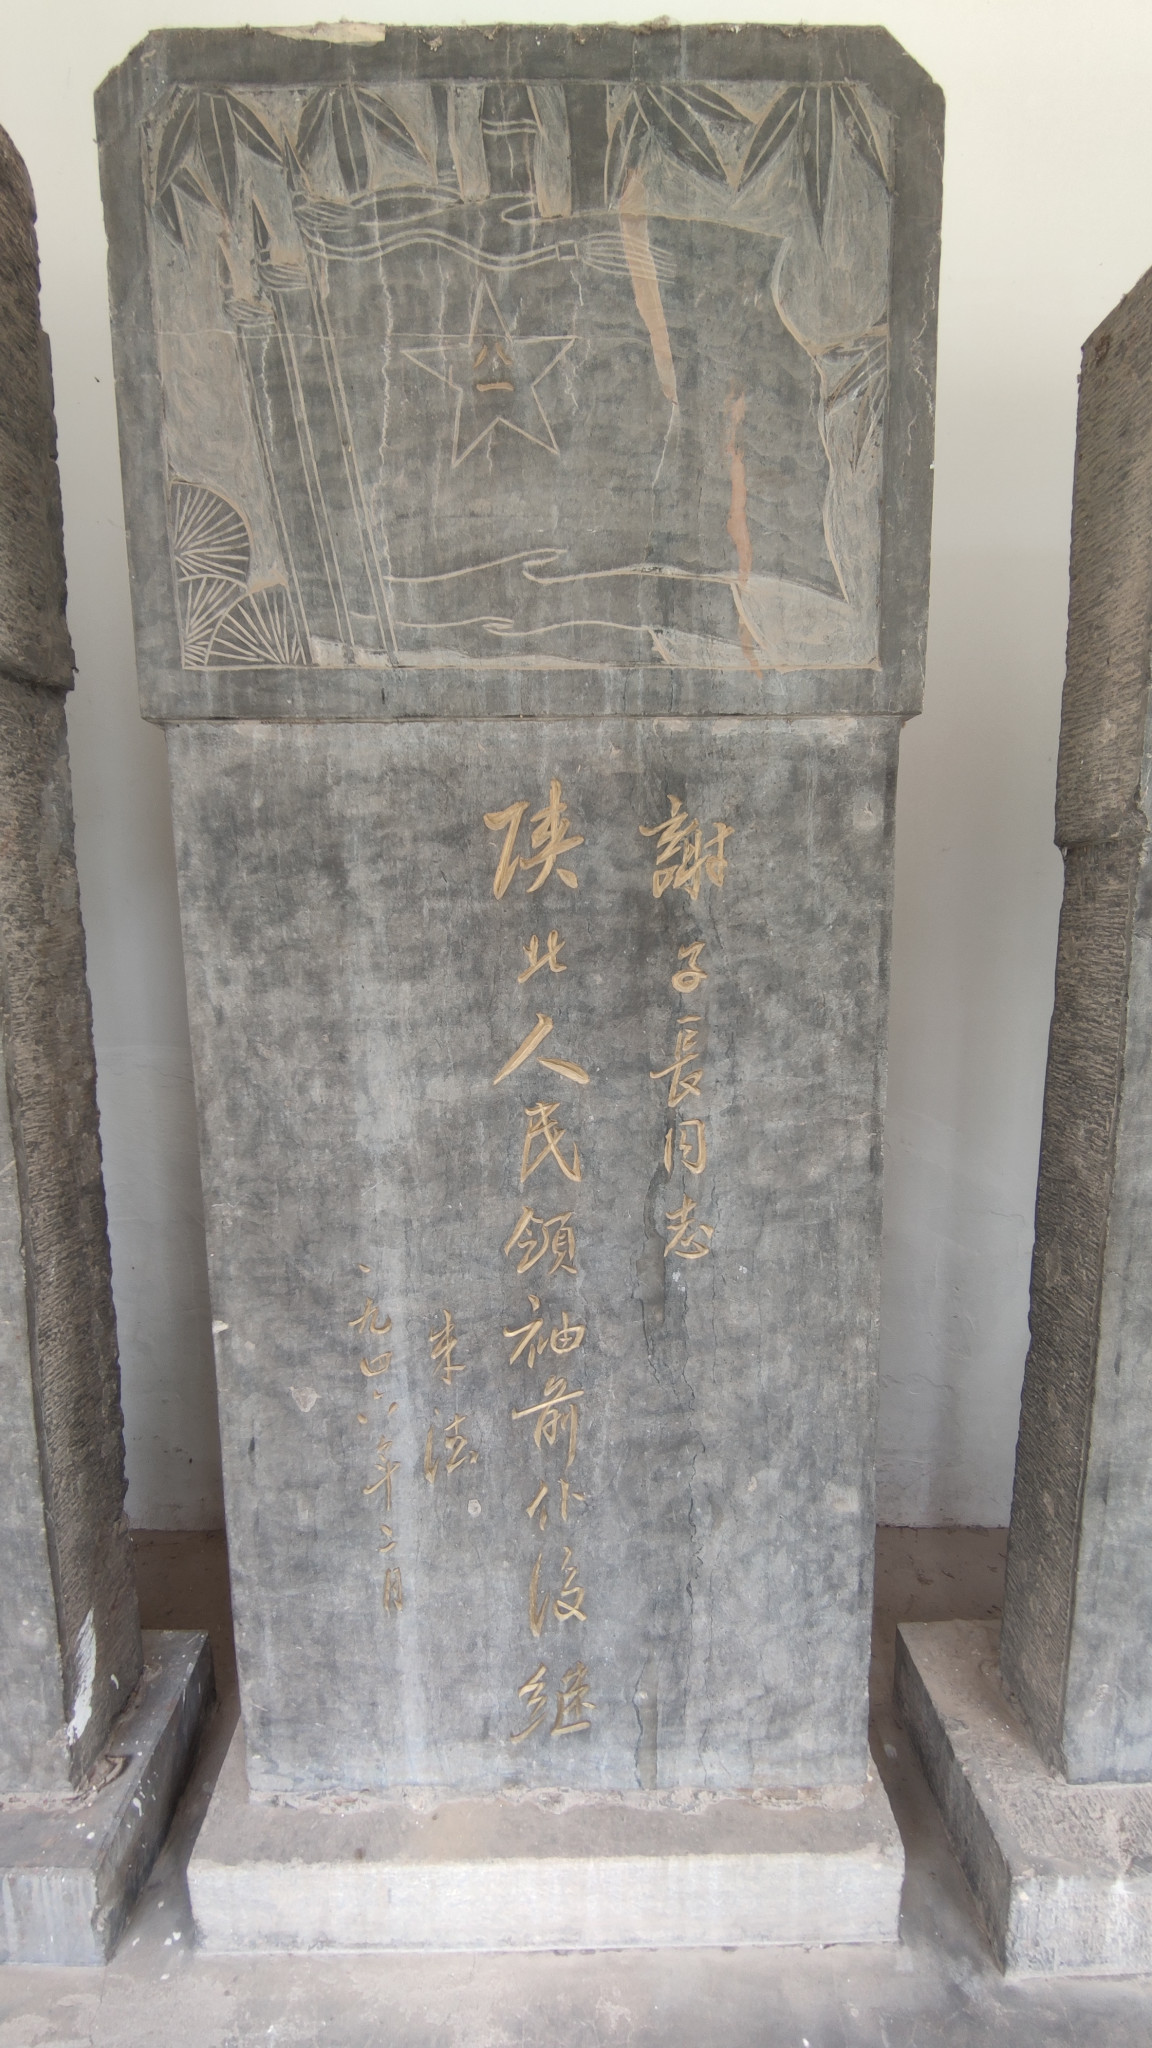 八一
謝子長同志
陕北人民領袖前仆後継
朱德
一九四六年二月